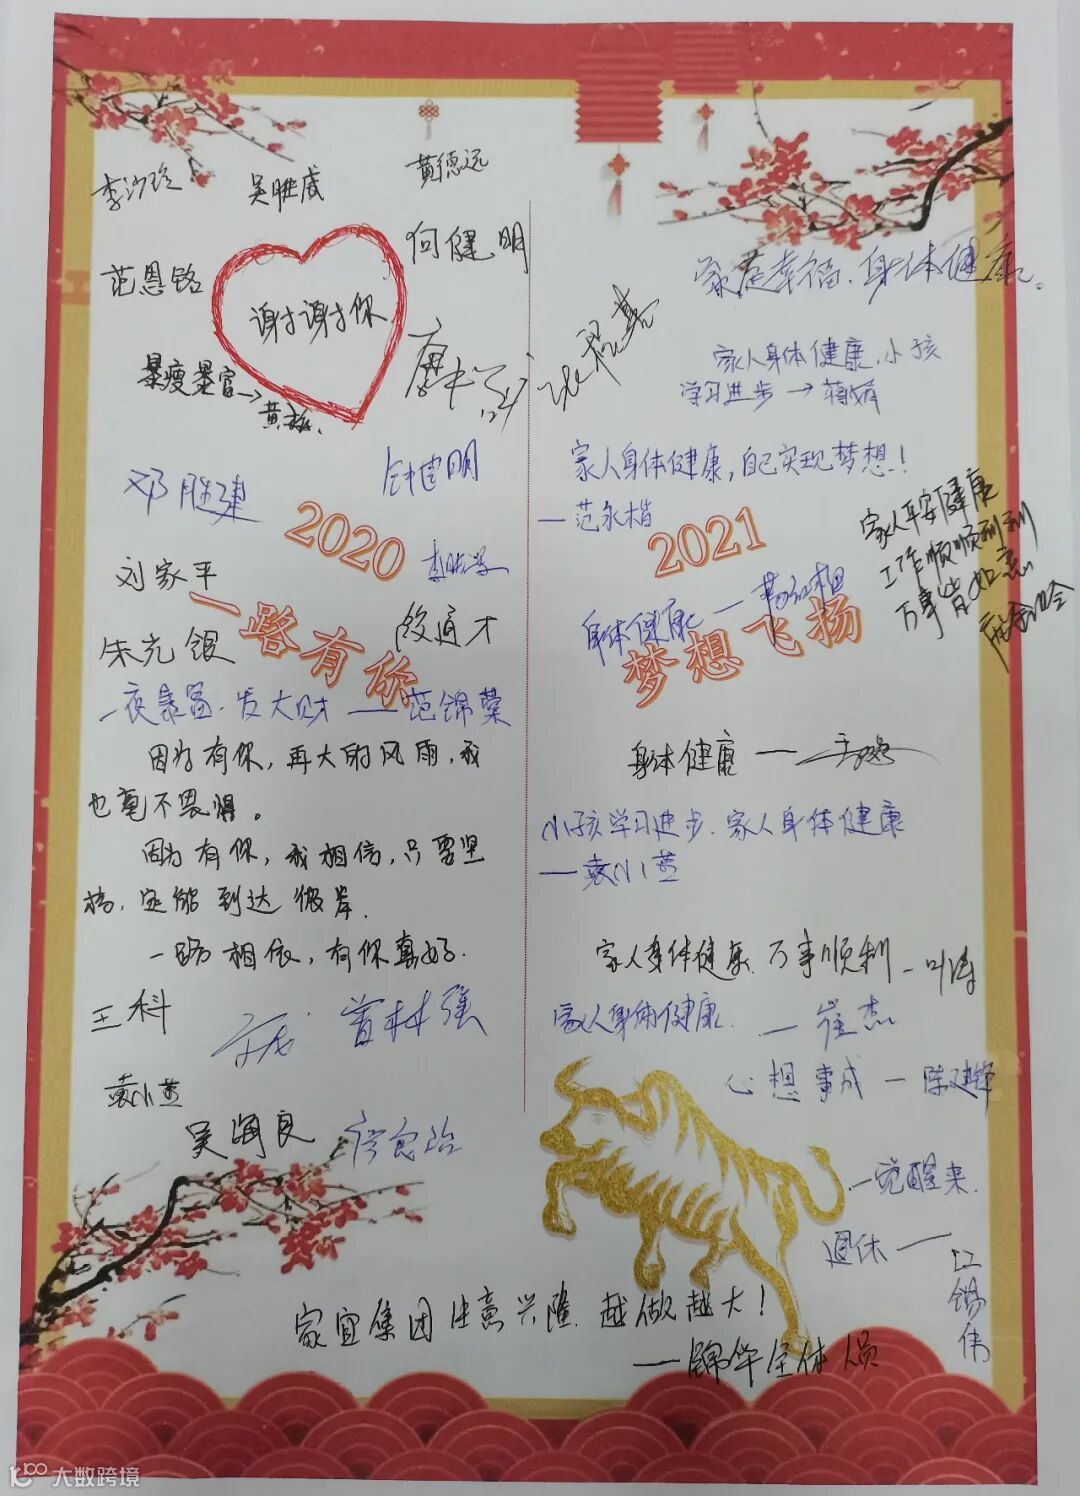 李沙玲
吴胜威
黄德远
范恩铭
何健明
谢谢你
暴瘦暴富→
黄
邓胜建
钟建明
2020
刘家平
一路有你
朱光银
段通才
一夜暴富.发大财——范锦荣
因为有你，再大的风雨，我
也毫不畏惧。
因为有你，我相信，只要坚
持，定能到达彼岸.
一路相依，有你真好.
王科
曾林强
袁小英
吴海良
家庭幸福、身体健康。
家人身体健康,小孩
学习进步→蒋娟
家人身体健康，自己实现梦想！
—范永楷
2021
家人平安健康
工作顺顺利利
万事皆如意
身体健康—
梦想飞扬
身体健康—
小孩学习进步、家人身体健康
—袁小英
家人身体健康.万事顺利—叶涛
家人身体健康.—崔杰
心想事成—陈建锋
一觉醒来.
退休—江锡伟
家宜集团生意兴隆 越做越大！
—锦华全体人员
大数跨境